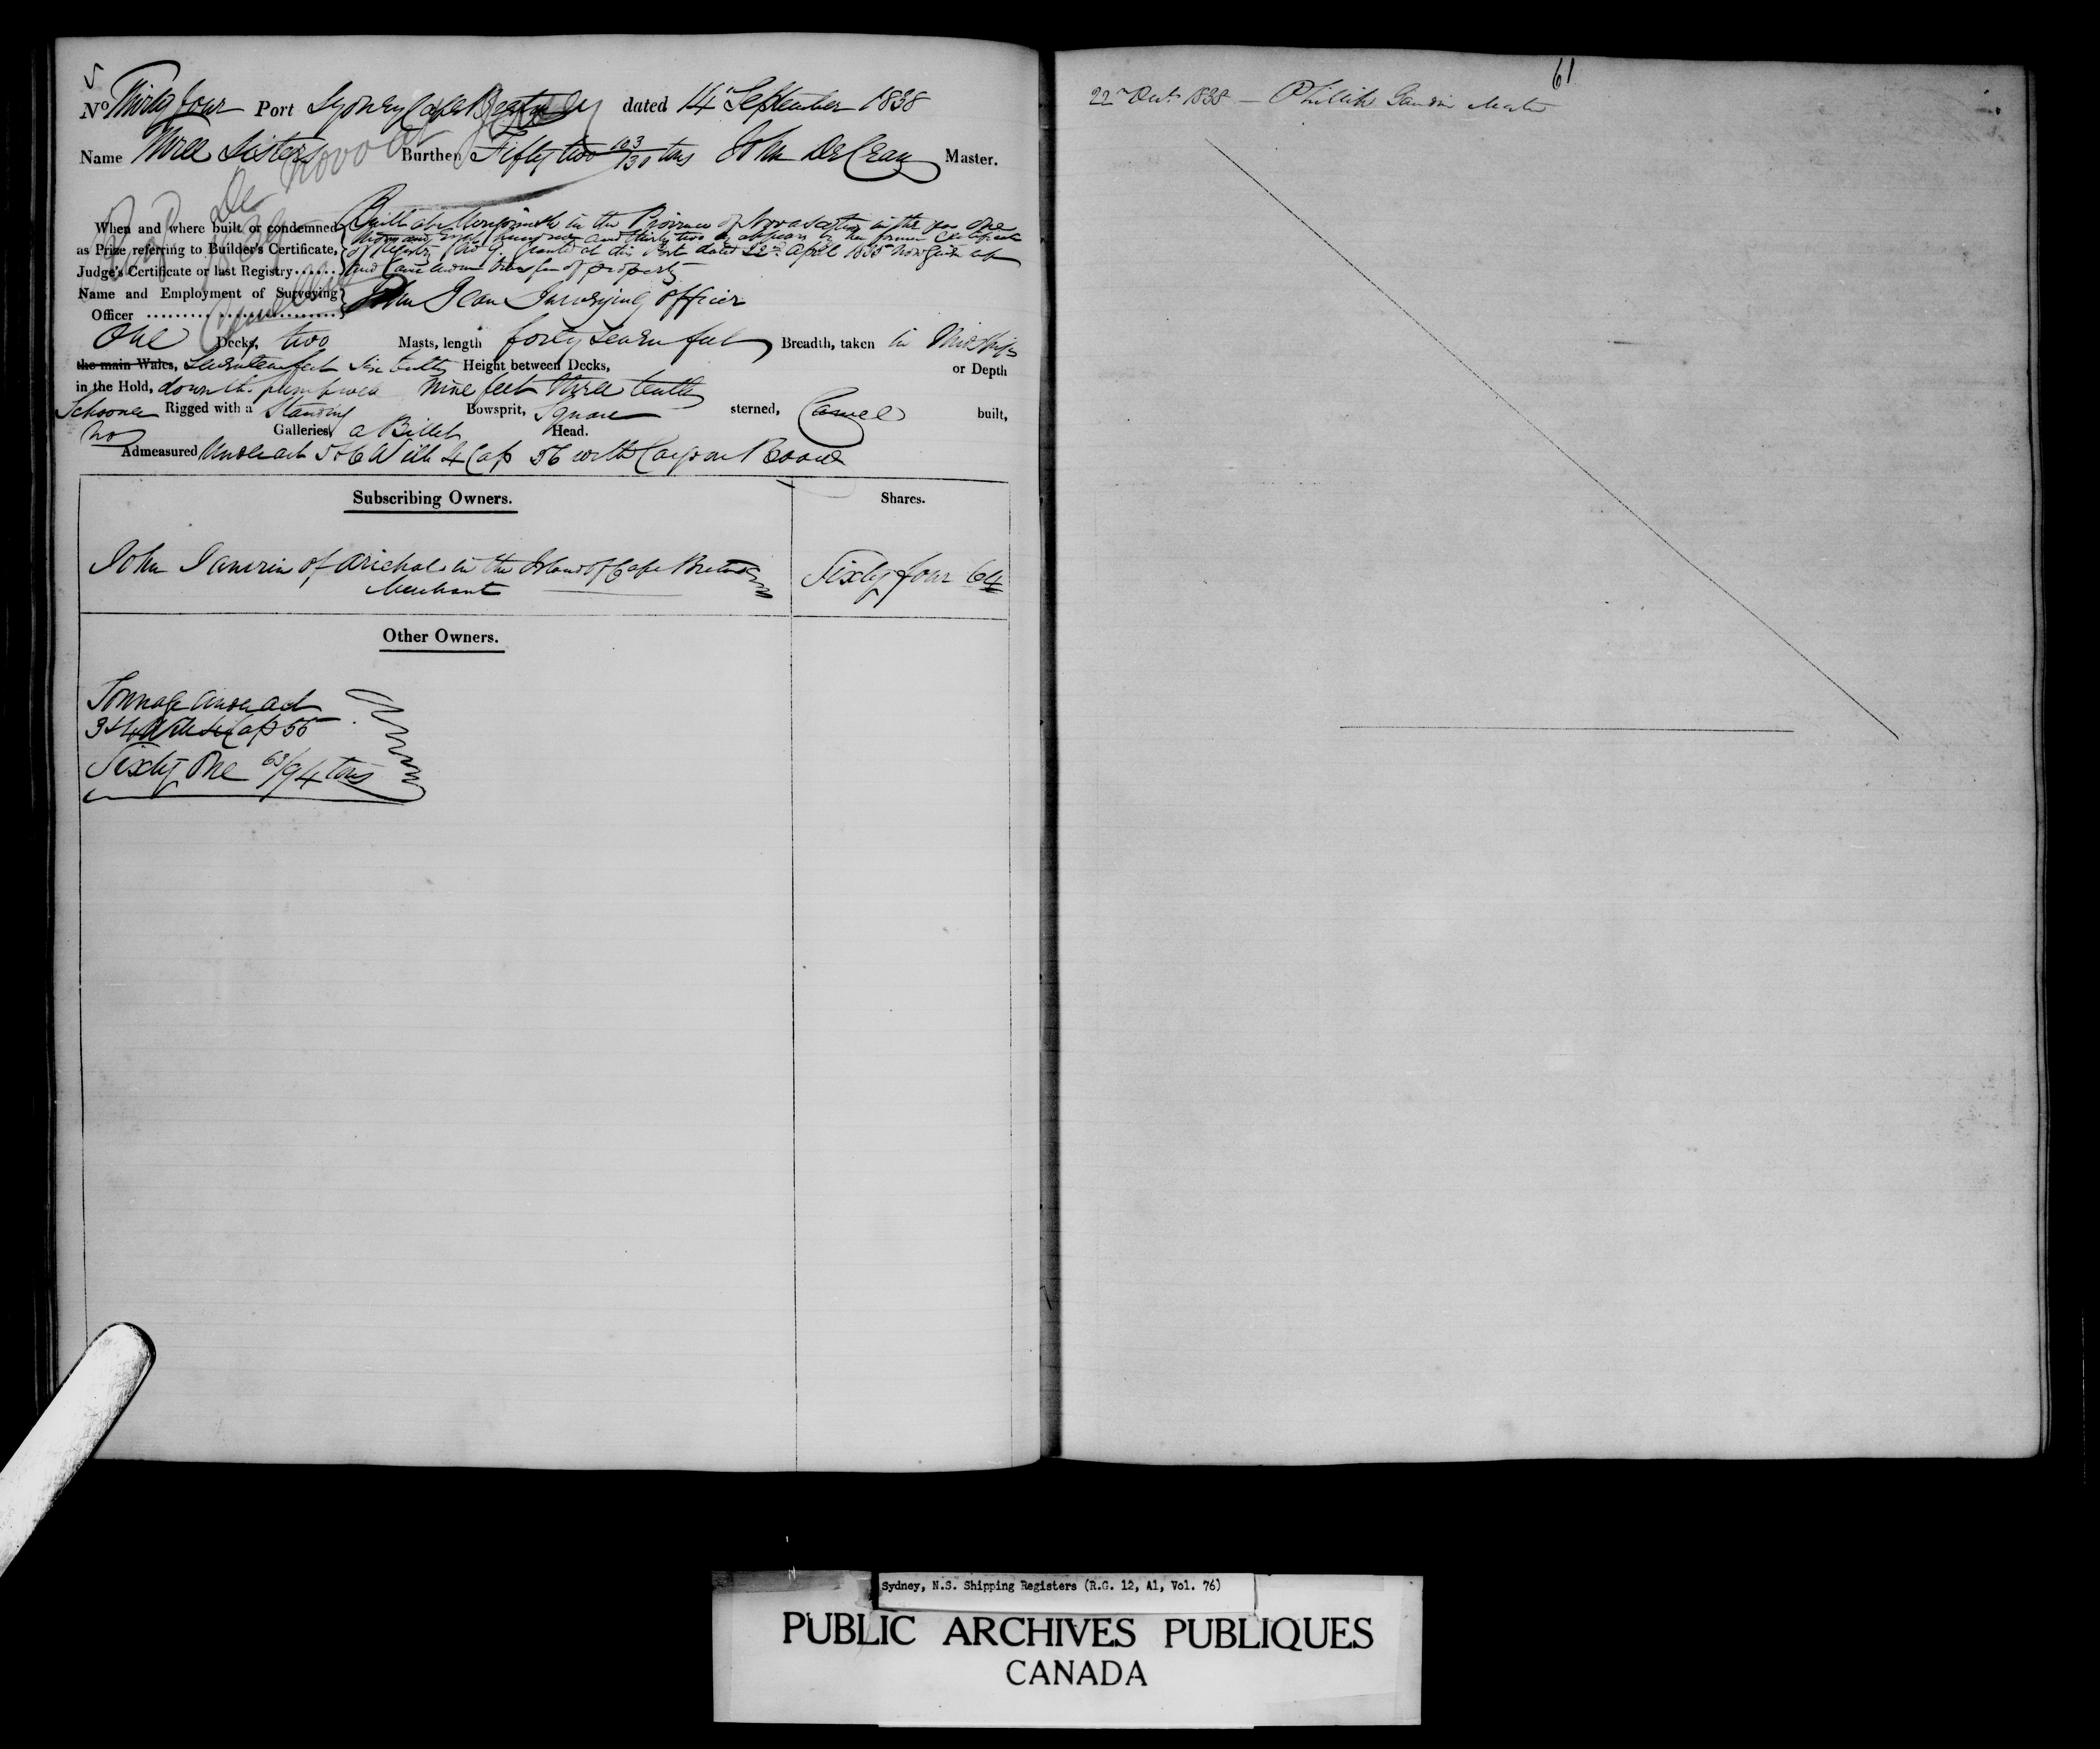 No Thirty four Port Sydney Cape Breton dated 14 September 1838
Name Three Sisters Burthen Fifty two 103/130 tons John Master.
When and where built or condemned
as Prize referring to Builder's Certificate,
Judge's Certificate or last Registry
Built at in the Province of Nova Scotia in the year One
thousand eight hundred and thirty two as appears by her former Certificate
of Registry No 9 Granted at this Port dated 22nd April 1835 now given up
and transfer of property
Name and Employment of Surveying
Officer
John Jean Surveying officer
One Decks, two Masts, length forty seven feet Breadth, taken in Midships
the main Wales, Seventeen feet six tenths Height between Decks, or Depth
in the Hold, down the pump well nine feet three tenths
Schooner Rigged with a Standing Bowsprit, Square sterned, Carvel built,
no Galleries, a Billet Head.
Admeasured Under act 5 & 6 Will 4 Cap 56 with Cargo on Board
Subscribing Owners. Shares.
John Janvrin of Arichat in the Island of Cape Breton
Merchant
Sixty four 64
Other Owners.
Tonnage under act
3 & 4 Will 4 Cap 55
Sixty One 63/94 tons
61
22nd 1838 - Phillip Master
Sydney, N.S. Shipping Registers (R.G. 12, A1, Vol. 76)
PUBLIC ARCHIVES PUBLIQUES
CANADA